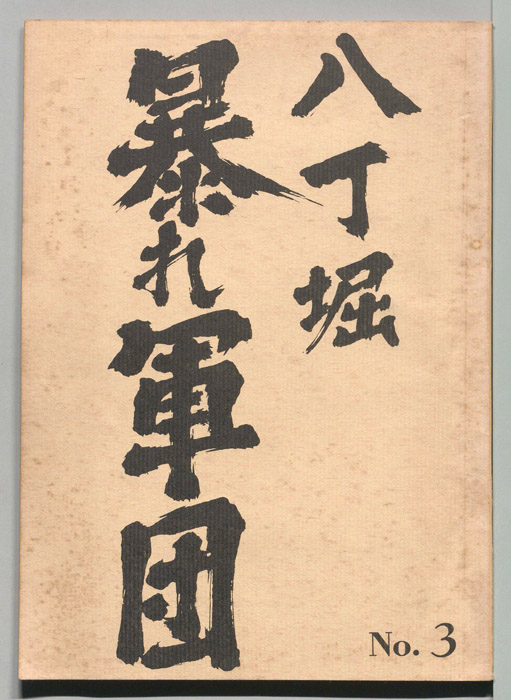 八丁堀
暴れ軍団
No. 3